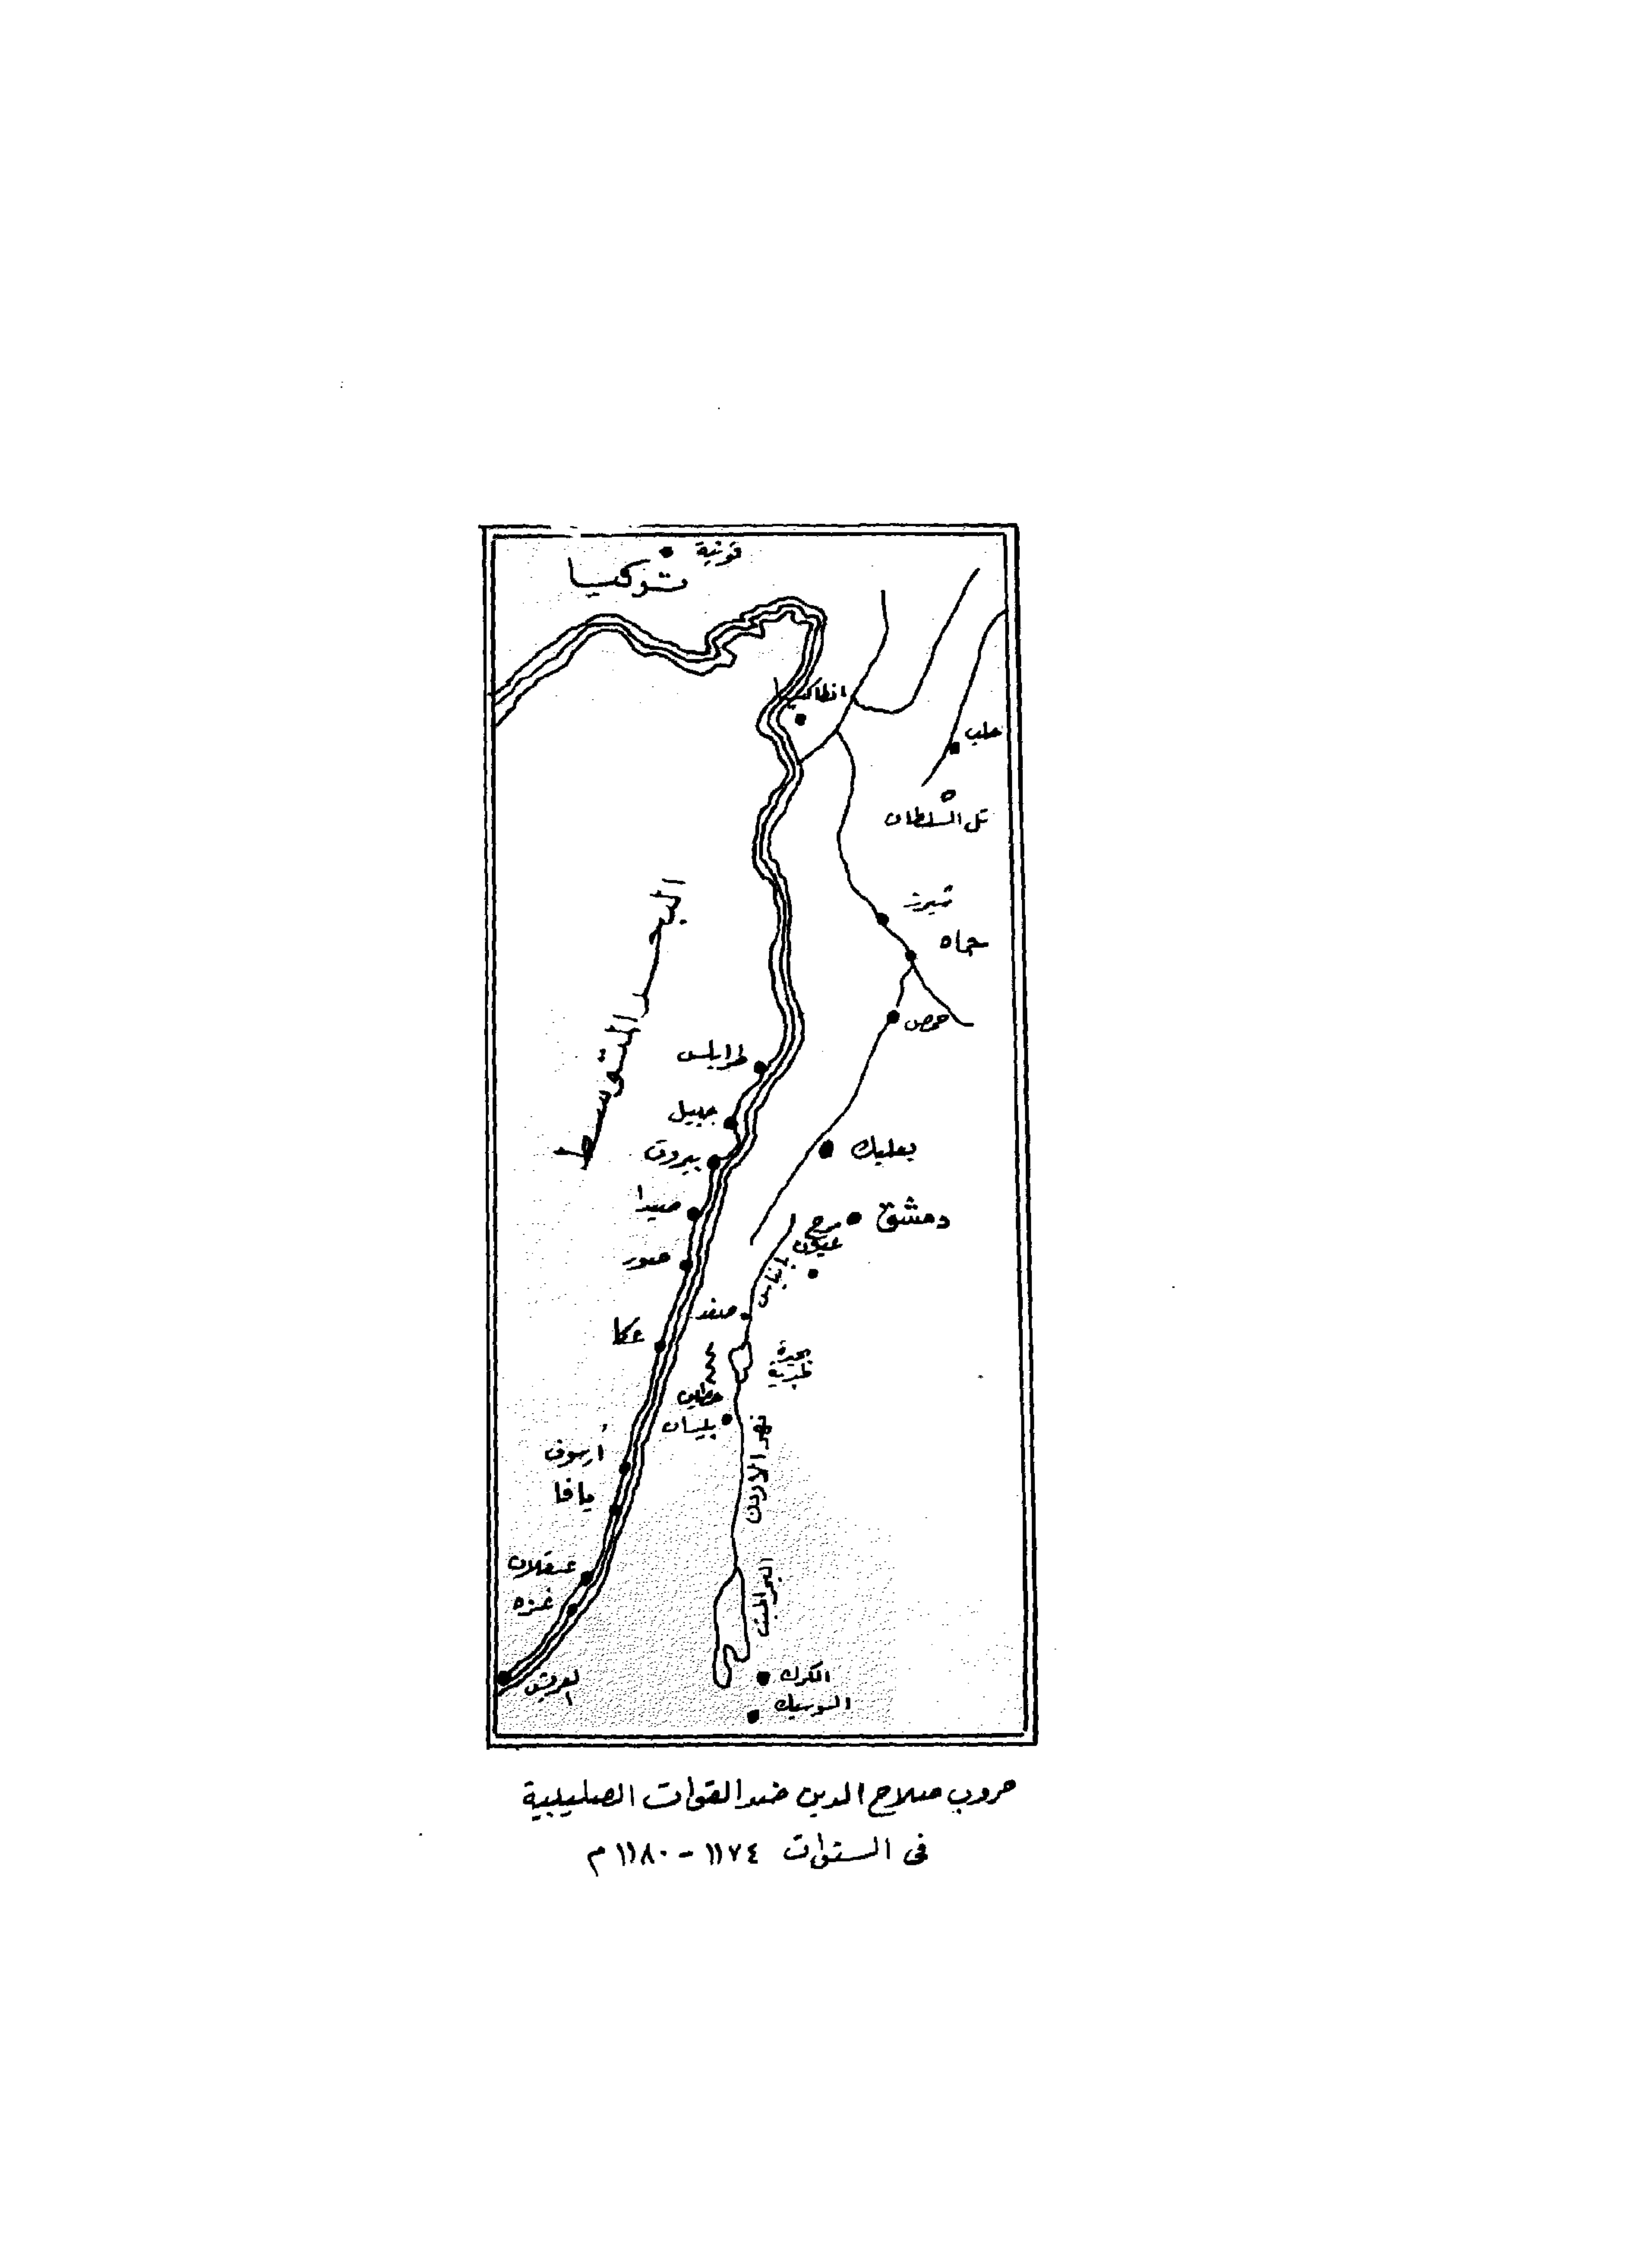 قونية
تركيا
انطاكية
حلب
تل السلطان
شيزر
حماه
حمص
البحر المتوسط
طرابلس
جبيل
بيروت
بعلبك
صيدا
دمشق
مرج
عيون
صور
بانياس
صفد
عكا
بحيرة
طبرية
حطين
بليسان
نهر الاردن
أرسوف
يافا
عسقلان
غزه
البحر الميت
العريش
الكرك
الشوبك
حروب صلاح الدين ضد القوات الصليبية
فى السنوات ١١٧٤ - ١١٨٠ م